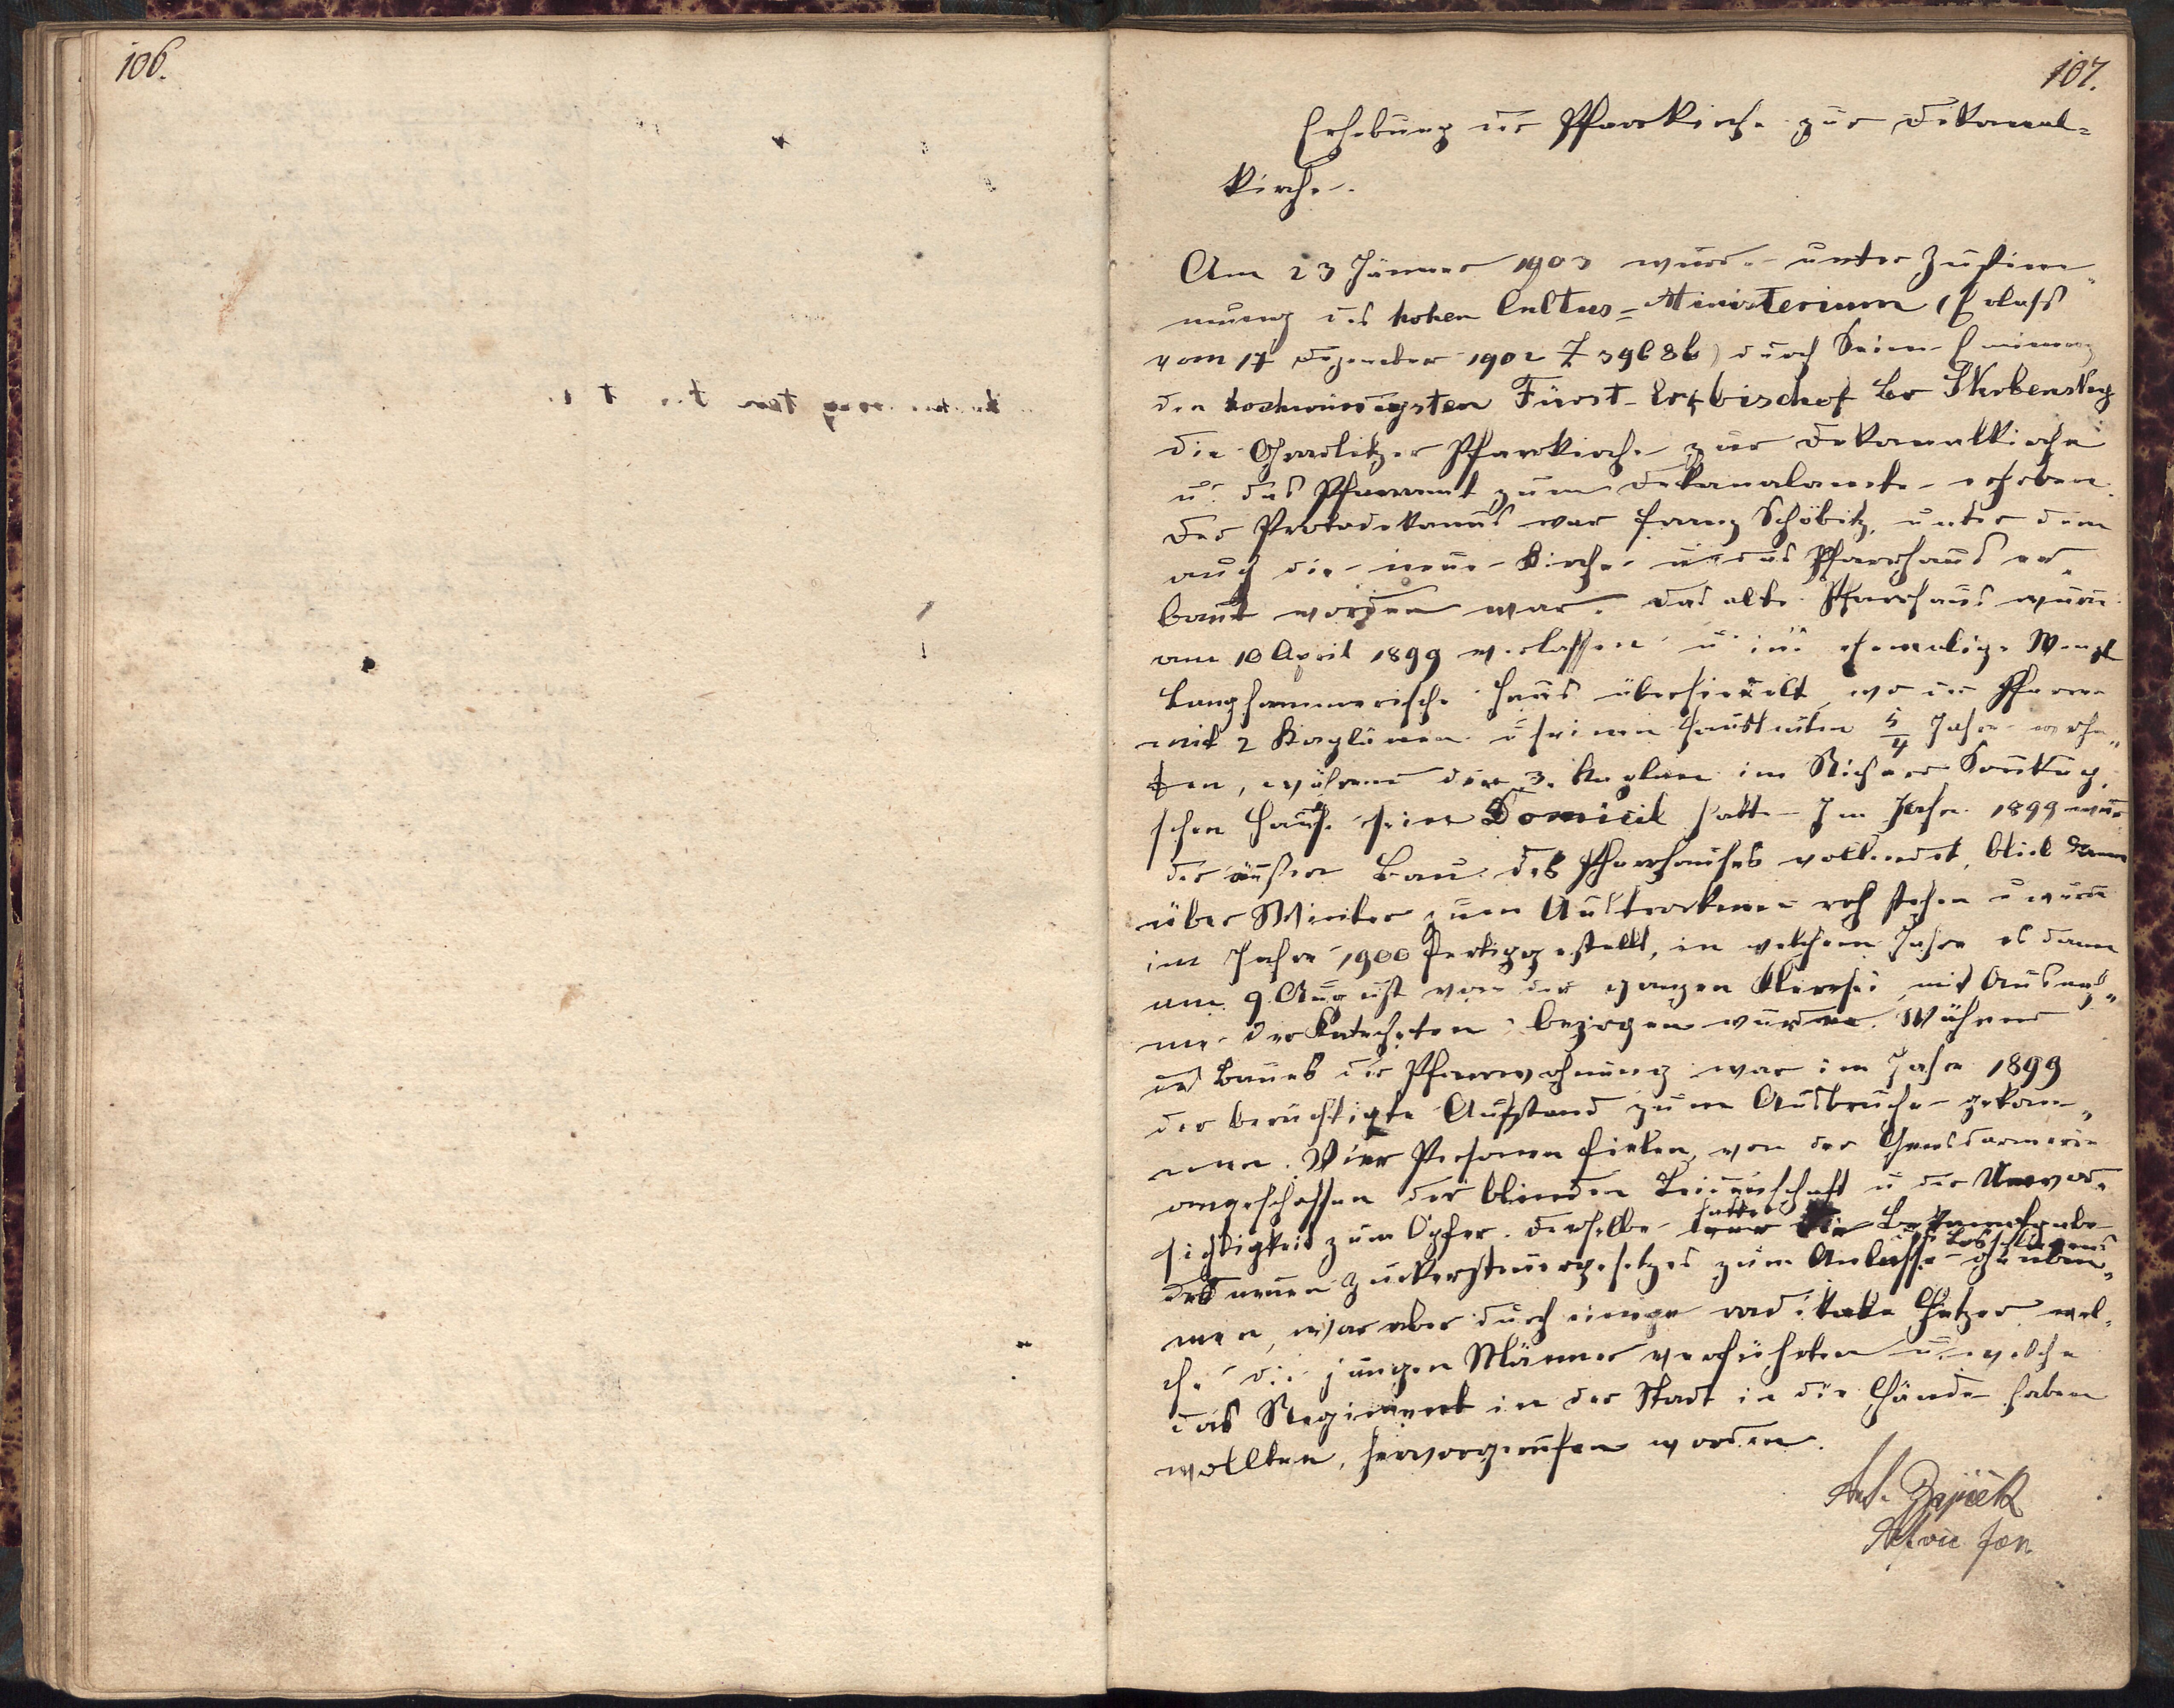 106.
107.
Erhebung der Pfarrkirche zur Dekanal=
kirche.
Am 23 Jänner 1903 wurde unter Zustim„
mung des hohen Cultus=Ministerium (Erlass
vom 17 Dezember 1902 Z 39686) durch Seine Eminenz
den hochwürdigsten Fürst-Erzbischof Leo Skrbensky
die Graslitzer Pfarrkirche zur Dekanalkirche
u. das Pfarramt zum Dekanalamte erhoben.
Der Protodekanus war Franz Schöbitz, unter dem
auch die neue Kirche u das Pfarrhaus er„
baut worden war. Das alte Pfarrhaus wurde
am 10 April 1899 verlassen u ins ehemalige Wenzl
Langhammerische Haus übersiedelt, wo der Pfarrer
mit 2 Kaplänen u seinen Hausleuten 5/4 Jahre wohn„
ten, während der 3. Kaplan im Richard
schen Hause sein Domicil hatte. Im Jahre 1899 wur
der äußere Bau des Pfarrhauses vollendet, blieb dann
über Winter zum Austrocknen roh stehen u wurde
im Jahre 1900 fertiggestellt, in welchem Jahre es dann
am 9. August von der ganzen Klerisei, mit Ausnah„
me der Katecheten bezogen wurde. Während
des Baues der Pfarrwohnung war im Jahre 1899
der berüchtigte Aufstand zum Ausbruche gekom„
men. Vier Personen fielen, von der Gensdarmerie
angeschossen der blinden Leidenschaft u der Unvor„
sichtigkeit zum Opfer. Derselbe hatte die Bekanntgabe
des neuen Zuckersteuergesetzes zum Anlasse genom„
men, war aber durch einige radikale Hetzer, wel„
che die jungen Männer verführten u welche
das Regiment in der Stadt in die Hände haben
wollten, hervorgerufen worden.
Ant. Zajiček
Jan